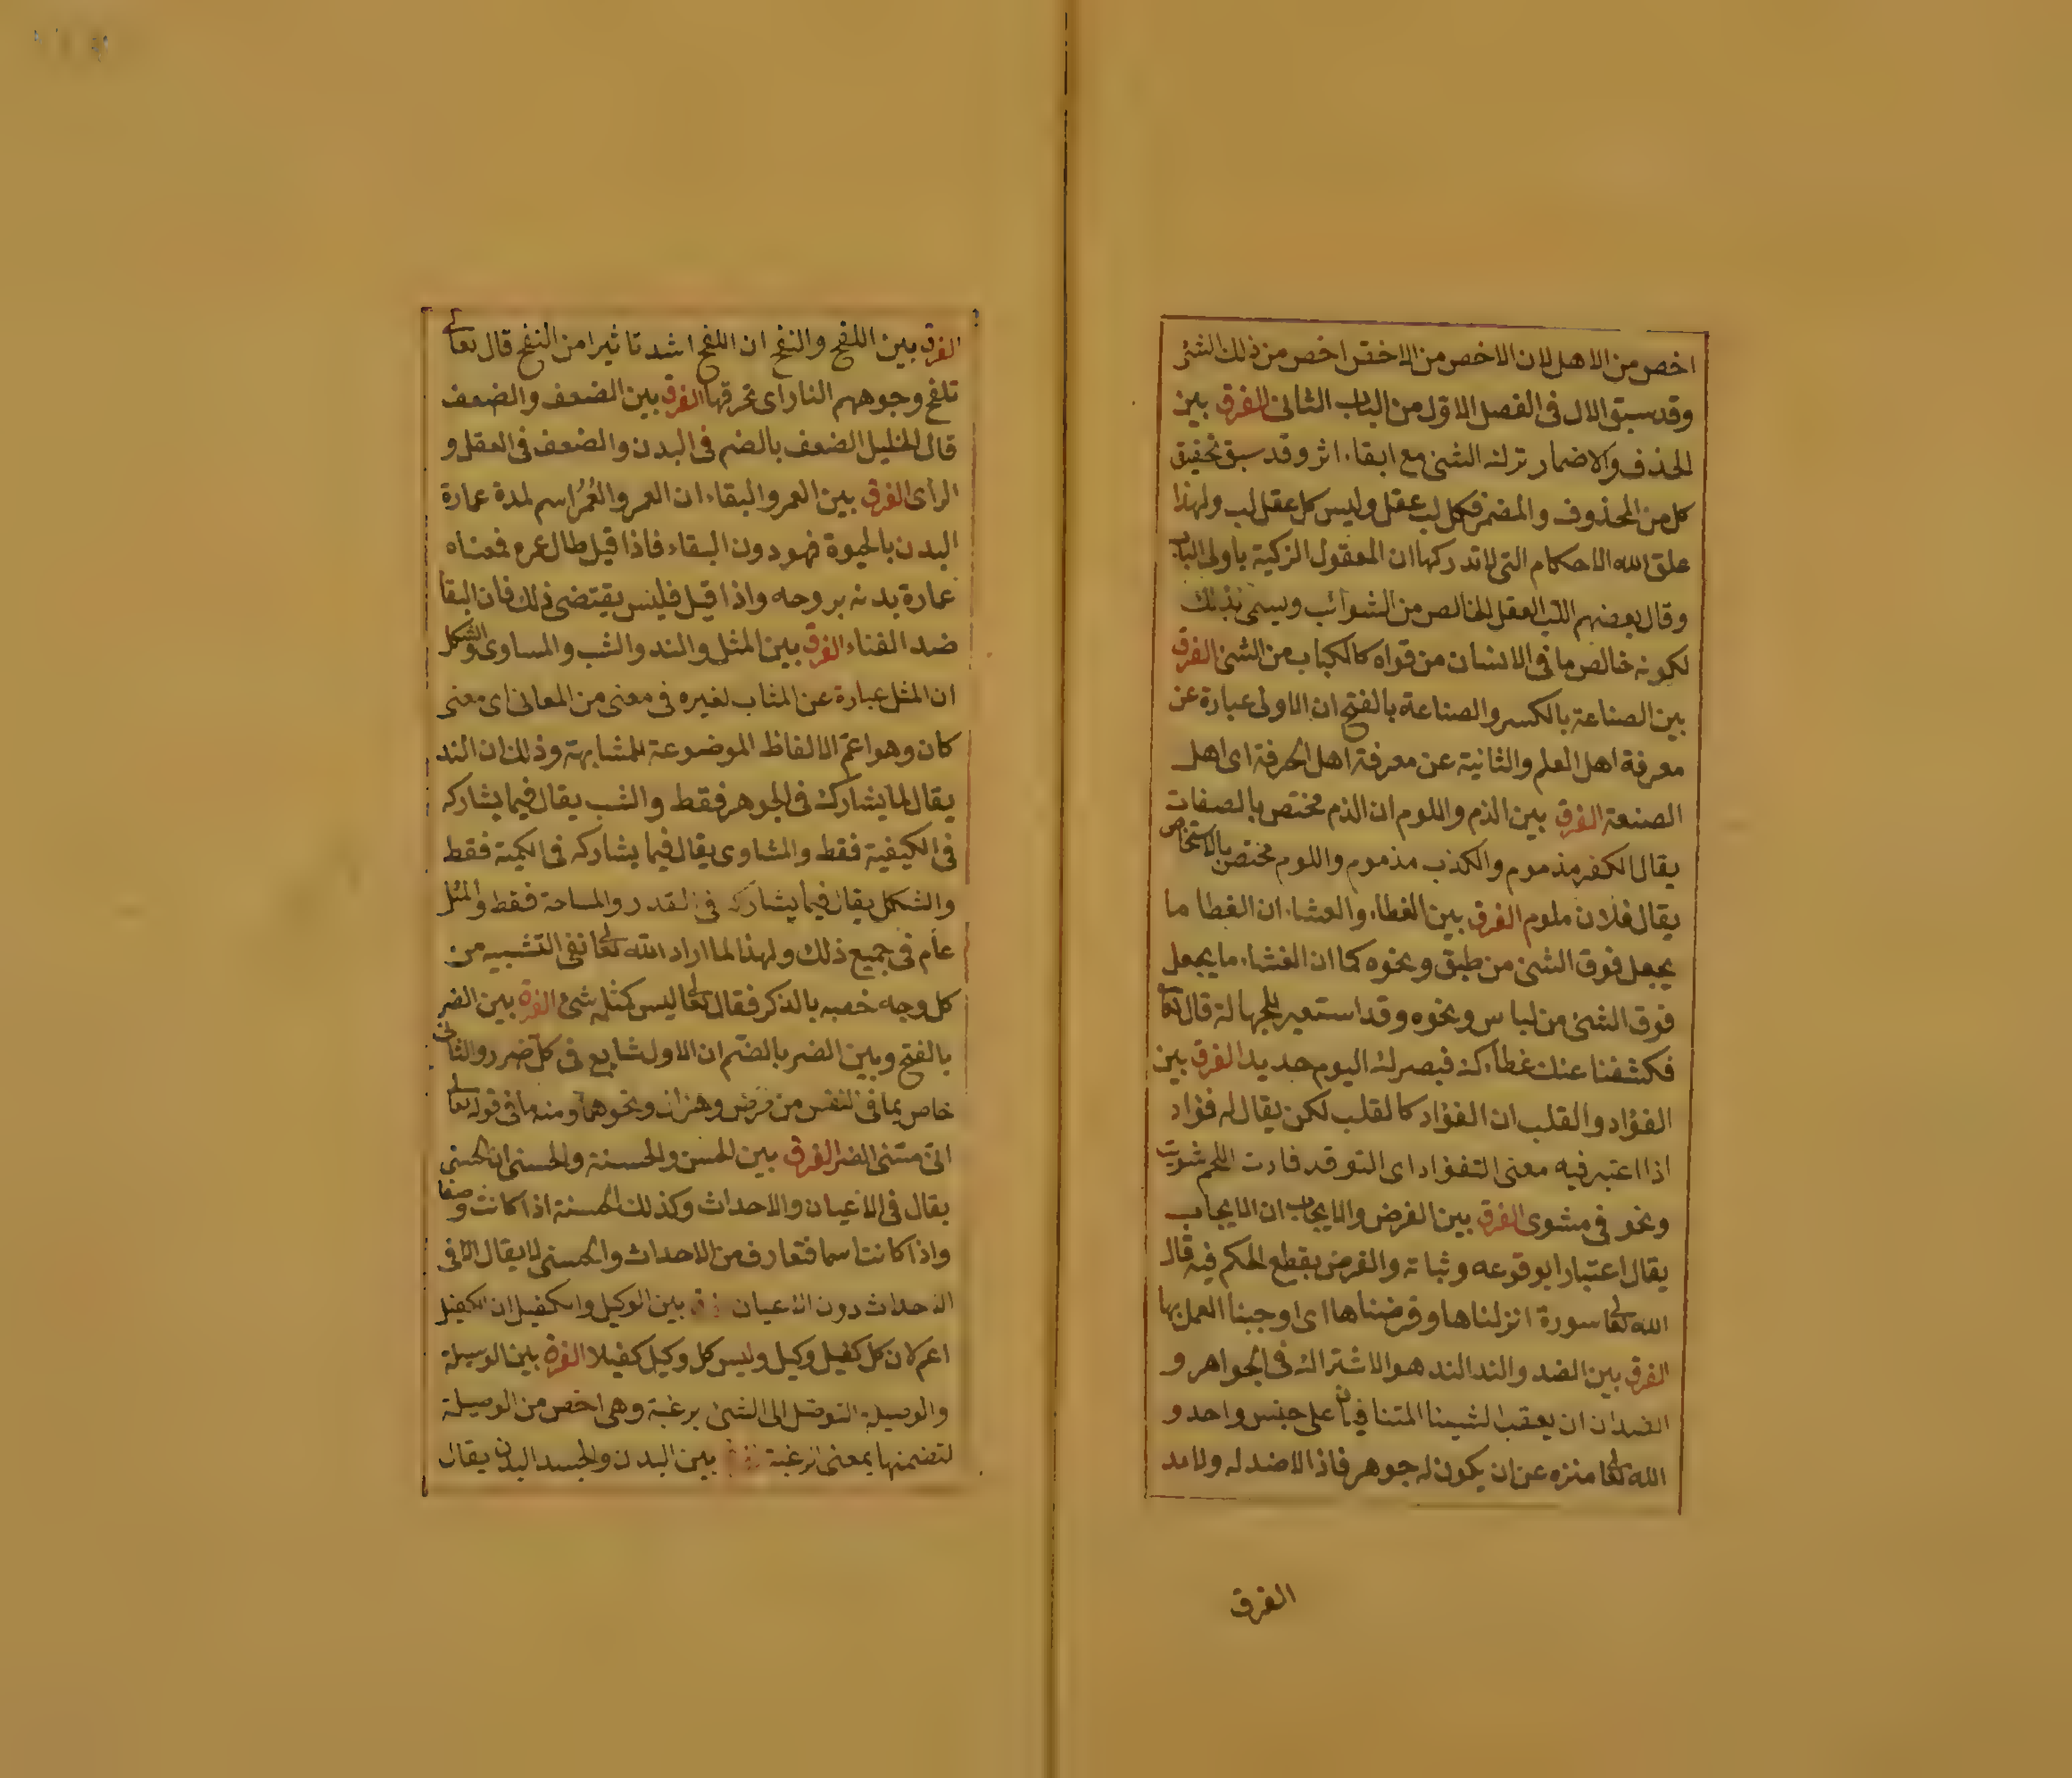 اخص من الاهل لان الاخص من الاخص اخص من ذلك الشئ
وقد سبق الال فى الفصل الاول من الباب الثانى الفرق بين
الحذف والاضمار ترك الشئ مع ابقاء اثر وقد سبق تحقيق
كل من المحذوف والمضمر فكل لب عقل وليس كل عقل لب ولهذا
علق الله الاحكام التى لا تدركها ان المعقول الزكية باولى الباب
وقال بعضهم اللب العقل الخالص من الشوائب ويسمى بذلك
لكونه خالص ما فى الانسان من قواه كالكباب من الشئ الفرق
بين الصناعة بالكسر والصناعة بالفتح ان الاولى عبارة عن
معرفة اهل العلم والثانية عن معرفة اهل الحرفة اى اهل
الصنعة الفرق بين الذم واللوم ان الذم مختص بالصفات
يقال الكفر مذموم والكذب مذموم واللوم مختص بالاشخاص
يقال فلان ملوم الفرق بين الغطاء والغشاء ان الغطا ما
يجعل فوق الشئ من طبق ونحوه كما ان الغشاء ما يجعل
فوق الشئ من لباس ونحوه وقد استعير للجهالة قال تعا
فكشفنا عنك غطاءك فبصرك اليوم حديد الفرق بين
الفؤاد والقلب ان الفؤاد كالقلب لكن يقال له فؤاد
اذا اعتبر فيه معنى التفؤاد اى التوقد فادت اللحم شويت
ونحو فى مشوى الفرق بين الفرض والايجاب ان الايجاب
يقال اعتبارا بوقوعه وثباته والفرض بقطع الحكم فيه قال
الله تعا سورة انزلناها وفرضناها اى اوجبنا العمل بها
الفرق بين الضد والند الند هو الاشتراك فى الجواهر و
الضدان ان يعقب الشيئا المتنافيان على جنس واحد و
الله تعا منزه عن ان يكون له جوهر فاذا لا ضد له ولا ند
الفرق
الفرق بين اللفح والنفح ان اللفح اشد تاثيرا من النفح قال تعا
تلفح وجوههم النار اى تحرقها الفرق بين الضعف والضعف
قال الخليل الضعف بالضم فى البدن والضعف فى العقل و
الرأى الفرق بين العمر والبقاء ان العمر والعُمُر اسم لمدة عمارة
البدن بالحيوة فهو دون البقاء فاذا قيل طال عمره فمعناه
عمارة بدنه بروحه واذا قيل فليس يقتضى ذلك فان البقا
ضد الفناء الفرق بين المثل والند والشب والمساوى والشكل
ان المثل عبارة عن المثاب لغيره فى معنى من المعانى اى معنى
كان وهو اعم الالفاظ الموضوعة للمشابهة وذلك ان الند
يقال لما يشارك فى الجوهر فقط والشب يقال فيما يشاركه
فى الكيفية فقط والمشاوى يقال فيما يشاركه فى الكمية فقط
والشكل يقال فيما يشاركه فى القدر والمساحة فقط والمثل
عام فى جميع ذلك ولهذا لما اراد الله تعا نفى التشبيه من
كل وجه خصه بالذكر فقال تعا ليس كمثله شئ الفرق بين الضر
بالفتح وبين الضر بالضم ان الاول شايع فى كل ضرر والثانى
خاص بما فى النفس من مرض وهزال ونحوهما ومنه ما فى قوله تعا
انى مسنى الضر الفرق بين الحسن والحسنة والحسنى ان الحسنى
يقال فى الاعيان والاحداث وكذلك الحسنة اذا كانت وصفا
واذا كانت اسما فتعارف من الاحداث والحسنى لا يقال الا فى
الاحداث دون الاعيان بين الوكيل والكفيل ان الكفيل
اعم لان كل كفيل وكيل وليس كل وكيل كفيلا الفرق بين الوسيلة
والوصيلة التوصل الى الشئ برغبة وهى اخص من الوصيلة
لتضمنها بمعنى الرغبة بين البدن والجسد البدن يقال